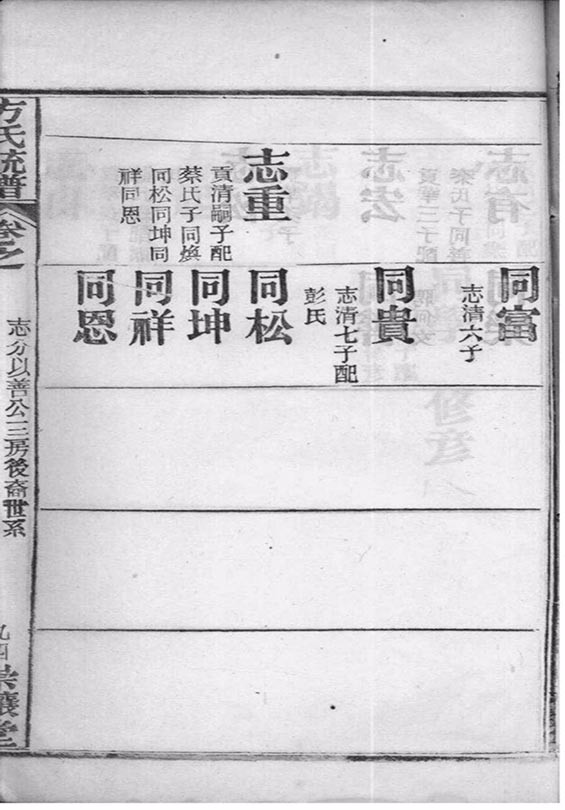 志重
貢清嗣子配
蔡氏子同煥
同松同坤同
祥同恩
同富
志清六子
同貴
志清七子配
彭氏
同松
同坤
同祥
同恩
方氏統譜
卷之
志分以善公三房後裔世系
九四
讓堂